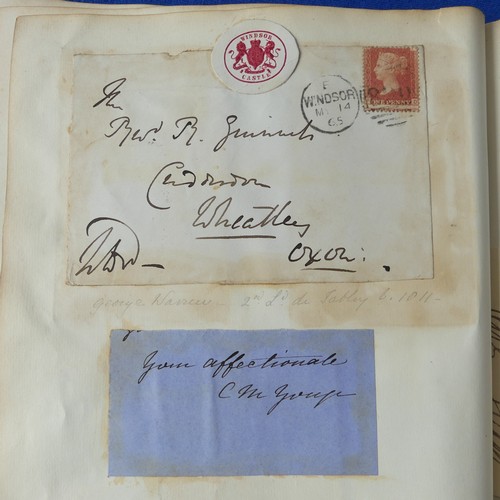 WINDSOR
CASTLE
E
WINDSOR
MY 14
65
ONE PENNY
The
Revd. R.
Cuddesdon
Wheatley
Oxon:
George Warren 2nd Ld. de Tabley b. 1811-
Your affectionate
C M Yonge